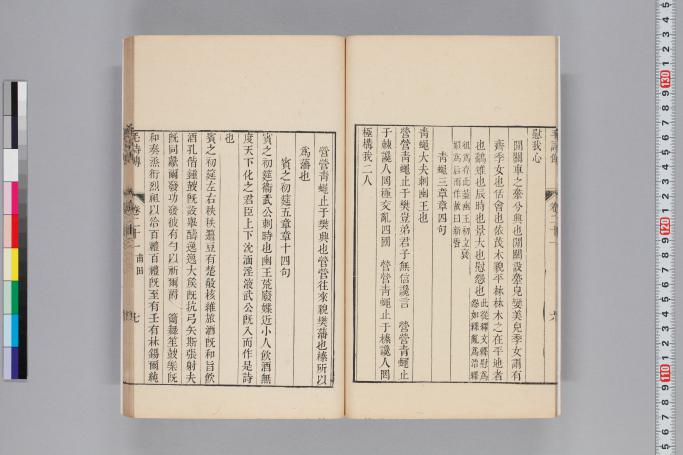 慰我心
閒關車之舝兮興也閒關設舝皃孌美皃季女謂有
齊季女也佸會也依茂木皃平林林木之在平地者
也鷮雉也辰時也景大也慰怨也
青蠅三章章四句
青蠅大夫刺幽王也
營營青蠅止于樊豈弟君子無信讒言 營營青蠅止
于棘讒人罔極交亂四國 營營青蠅止于榛讒人罔
極構我二人
營營青蠅止于樊興也營營往來皃樊藩也榛所以
為藩也
賓之初筵五章章十四句
賓之初筵衞武公刺時也幽王荒廢媟近小人飲酒無
度天下化之君臣上下沈湎淫液武公旣入而作是詩
也
賓之初筵左右秩秩籩豆有楚殽核維旅酒旣和旨飲
酒孔偕鍾鼓旣設舉醻逸逸大矦旣抗弓矢斯張射夫
旣同獻爾發功發彼有勺以祈爾爵 籥舞笙鼓樂旣
和奏烝衎烈祖以洽百禮百禮旣至有壬有林錫爾純
毛詩傳
卷二十一
甫田
七